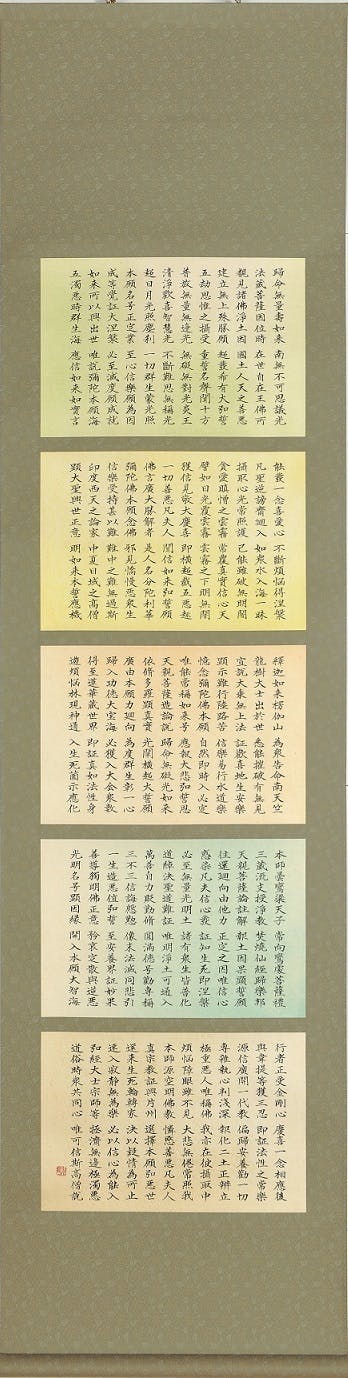 歸命無量壽如来 南無不可思議光
法藏菩薩因位時 在世自在王佛所
覩見諸佛淨土因 國土人天之善惡
建立無上殊勝願 超發希有大弘誓
五劫思惟之攝受 重誓名聲聞十方
普放無量無邊光 無礙無對光炎王
清淨歡喜智慧光 不斷難思無稱光
超日月光照塵刹 一切群生蒙光照
本願名号正定業 至心信樂願為因
成等覺證大涅槃 必至滅度願成就
如来所以興出世 唯說彌陀本願海
五濁惡時群生海 應信如来如實言
能發一念喜愛心 不斷煩惱得涅槃
凡聖逆謗齊廻入 如衆水入海一味
攝取心光常照護 已能雖破無明闇
貪愛瞋憎之雲霧 常覆真實信心天
譬如日光覆雲霧 雲霧之下明無闇
獲信見敬大慶喜 即橫超截五惡趣
一切善惡凡夫人 聞信如来弘誓願
佛言廣大勝解者 是人名分陀利華
彌陀佛本願念佛 邪見憍慢惡衆生
信樂受持甚以難 難中之難無過斯
印度西天之論家 中夏日域之高僧
顯大聖興世正意 明如来本誓應機
釋迦如来楞伽山 為衆告命南天竺
龍樹大士出於世 悉能摧破有無見
宣說大乘無上法 證歡喜地生安樂
顯示難行陸路苦 信樂易行水道樂
憶念彌陀佛本願 自然即時入必定
唯能常稱如来号 應報大悲弘誓恩
天親菩薩造論說 歸命無礙光如来
依修多羅顯真實 光闡橫超大誓願
廣由本願力廻向 為度群生彰一心
歸入功德大寶海 必獲入大會衆數
得至蓮華藏世界 即證真如法性身
遊煩惱林現神通 入生死薗示應化
本師曇鸞梁天子 常向鸞處菩薩禮
三藏流支授淨教 焚燒仙經歸樂邦
天親菩薩論註解 報土因果顯誓願
往還廻向由他力 正定之因唯信心
惑染凡夫信心發 證知生死即涅槃
必至無量光明土 諸有衆生皆普化
道綽決聖道難證 唯明淨土可通入
萬善自力貶勤修 圓滿德号勸專稱
三不三信誨慇懃 像末法滅同悲引
一生造惡值弘誓 至安養界證妙果
善導獨明佛正意 矜哀定散與逆惡
光明名号顯因緣 開入本願大智海
行者正受金剛心 慶喜一念相應後
與韋提等獲三忍 即證法性之常樂
源信廣開一代教 偏歸安養勸一切
專雜執心判淺深 報化二土正辨立
極重惡人唯稱佛 我亦在彼攝取中
煩惱障眼雖不見 大悲無倦常照我
本師源空明佛教 憐愍善惡凡夫人
真宗教證興片州 選擇本願弘惡世
還来生死輪轉家 決以疑情為所止
速入寂靜無為樂 必以信心為能入
弘經大士宗師等 拯濟無邊極濁惡
道俗時衆共同心 唯可信斯高僧說